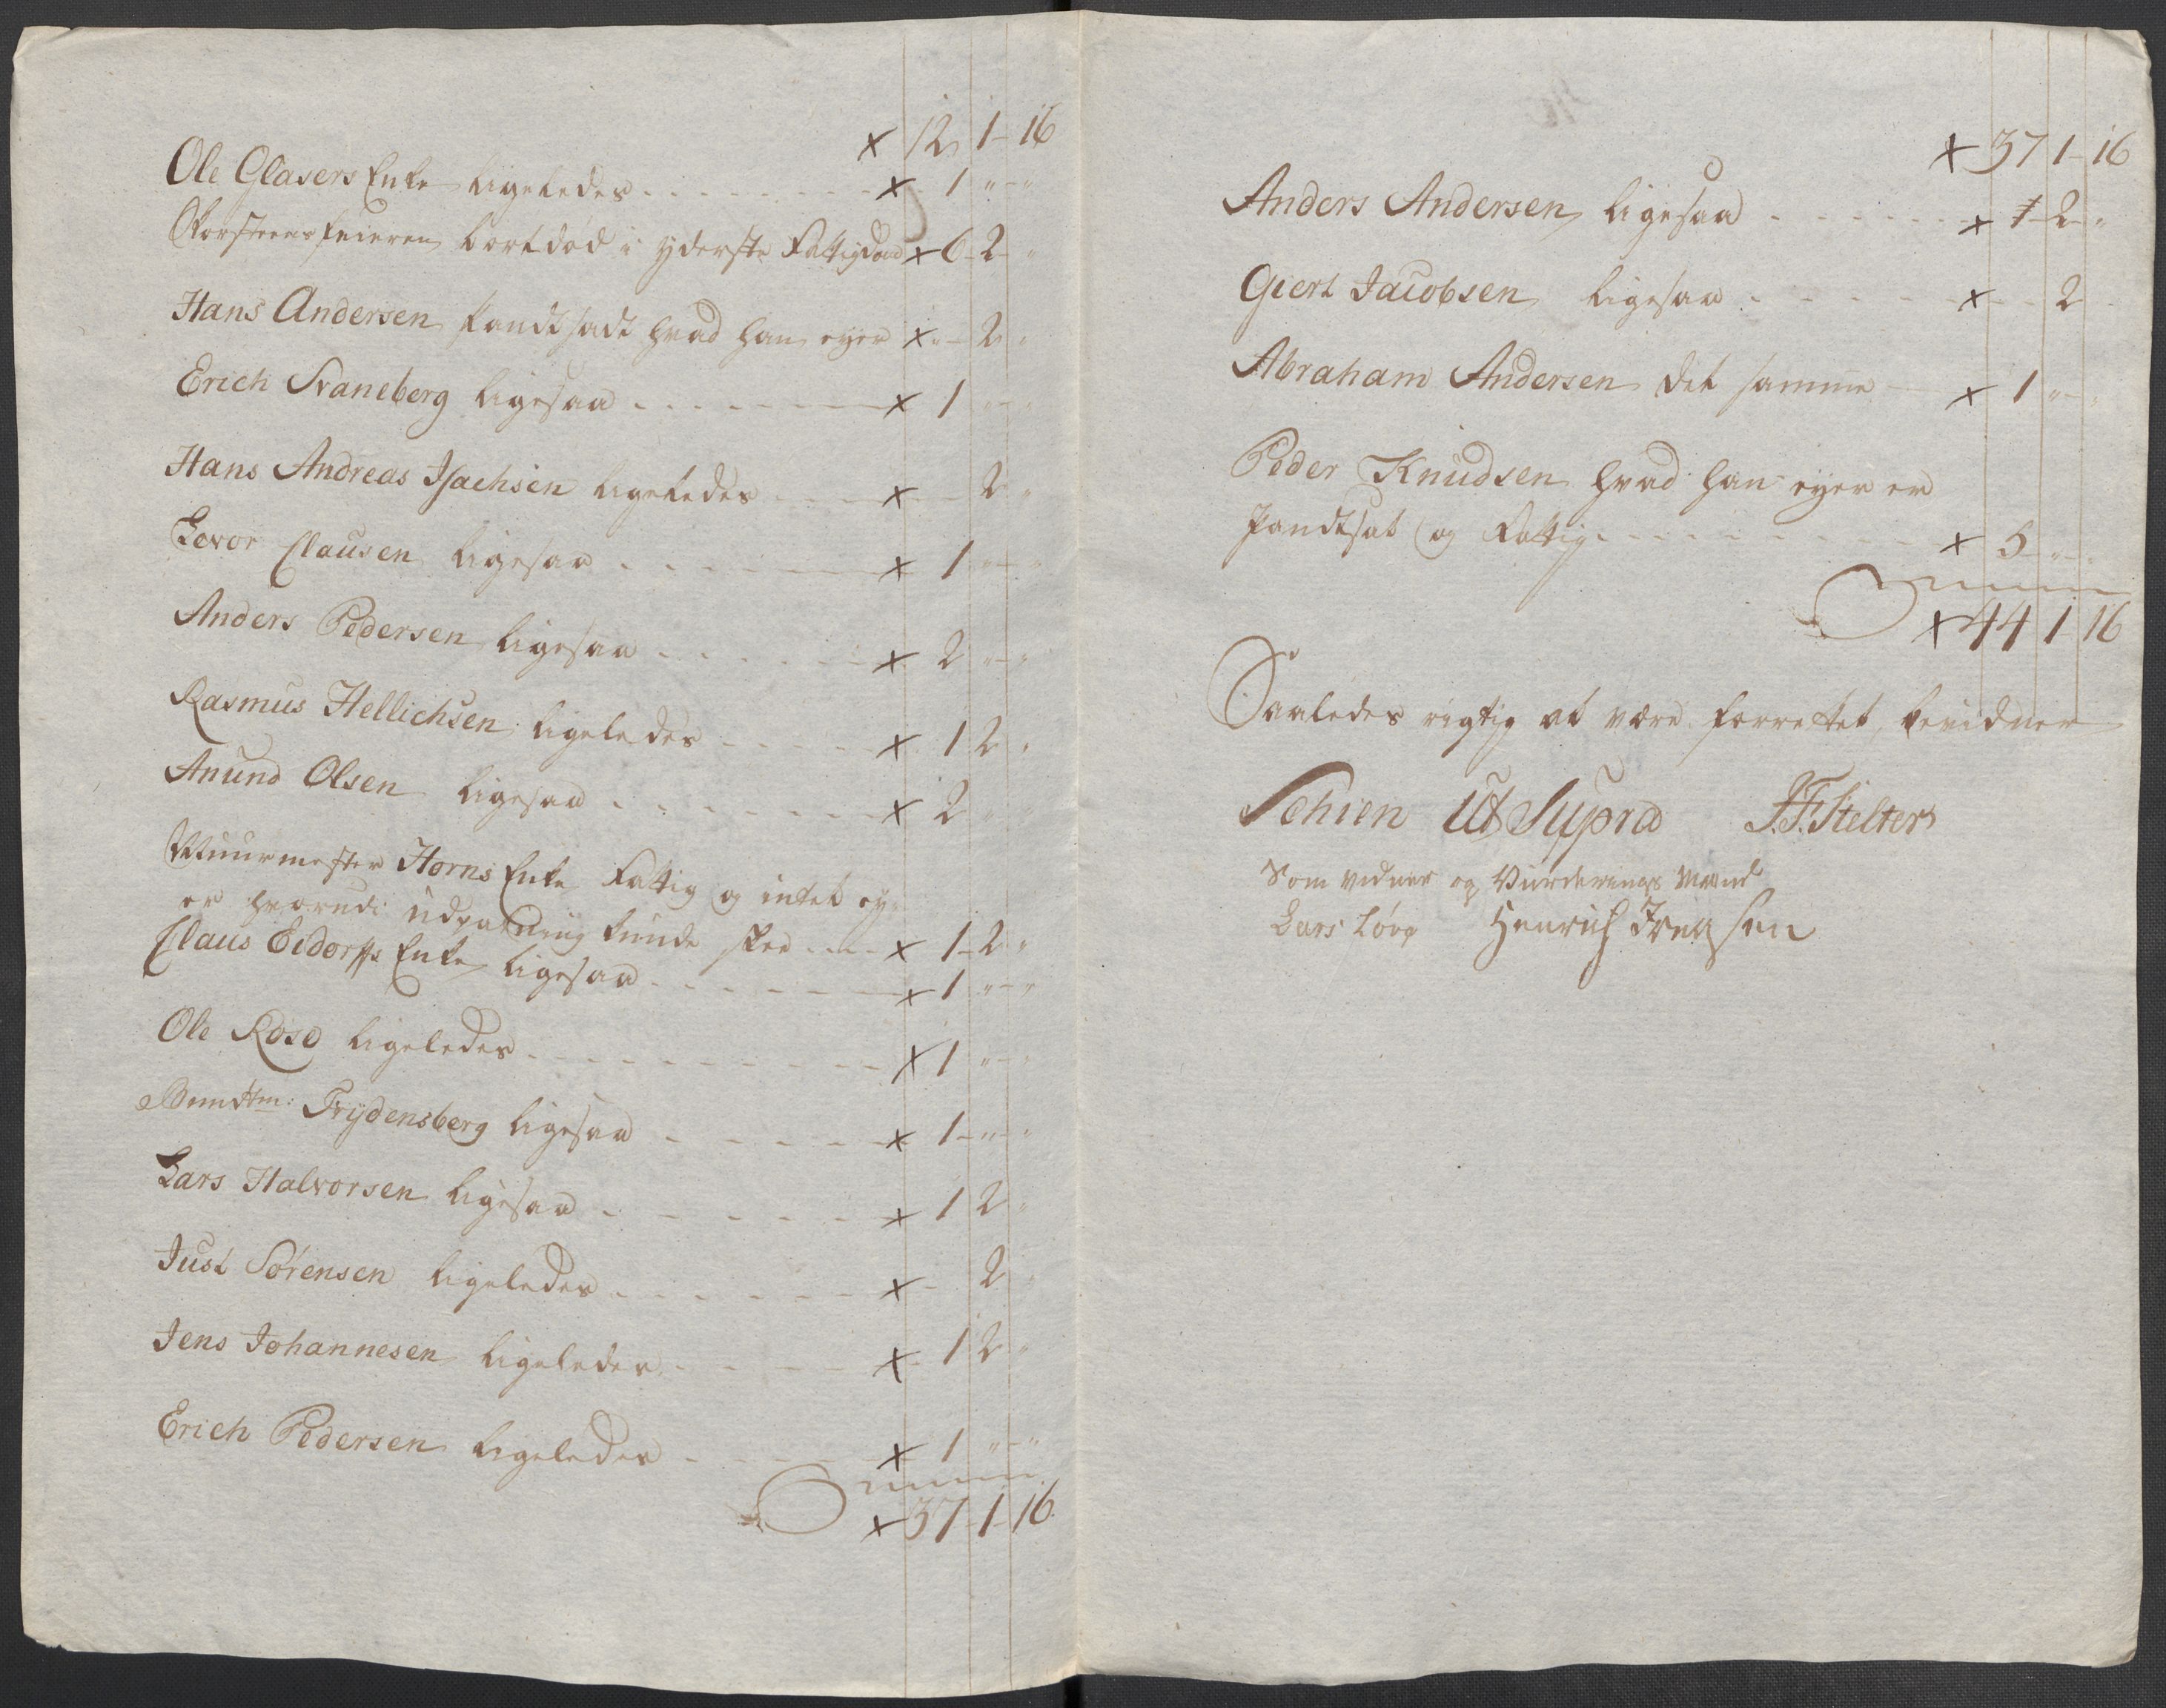 x 12 1 - 16
Ole Glasers Enke ligeledes - - - - x 1 " - "
Skorsteensfeieren bortdød i yderste Fattigdom x 6 - 2 - "
Hans Andersen pandtsadt hvad han eyer x " - 2 "
Erich Svaneberg ligesaa - - - - x 1 " - "
Hans Andreas Isachsen ligeledes - - - x - 2 "
Levor Clausen ligesaa - - - - x 1 " - "
Anders Pedersen ligesaa - - - - x 2 " - "
Rasmus Hellichsen ligeledes - - - - x 1 2 "
Anund Olsen ligesaa - - - - x 2
Muurmester Horns Enke Fattig og intet ey-
er hvorudi udpatning kunde skee - - - x 1 - 2 "
Claus Eidorffs Enke ligesaa - - - - x 1 " - "
Ole Rose ligeledes - - - - x 1 " - "
Trydensberg ligesaa - - - - x 1 - " - "
Lars Halvorsen ligesaa - - - - x 1 2 "
Just Sørensen ligeledes - - - - x - 2
Jens Johannesen ligeledes - - - - x 1 2 "
Erich Pedersen ligeledes - - - - x 1 " - "
Summa
x 37 - 1 - 16.
x 37 1 - 16
Anders Andersen ligesaa - - - - x 1 - 2 - "
Giert Jacobsen ligesaa - - - - x - 2
Abraham Andersen det samme - x 1 " - "
Peder Knudsen hvad han eyer er
pandtsat og Fattig - - - - x 5 " - "
Summa
x 44 1 16
Saaledes rigtig at være forrettet, bevidner
Schien Ut Supra J. F. Stelter
Som vidner og Vurderings Mænd
Lars Løve Henrich Jrensen